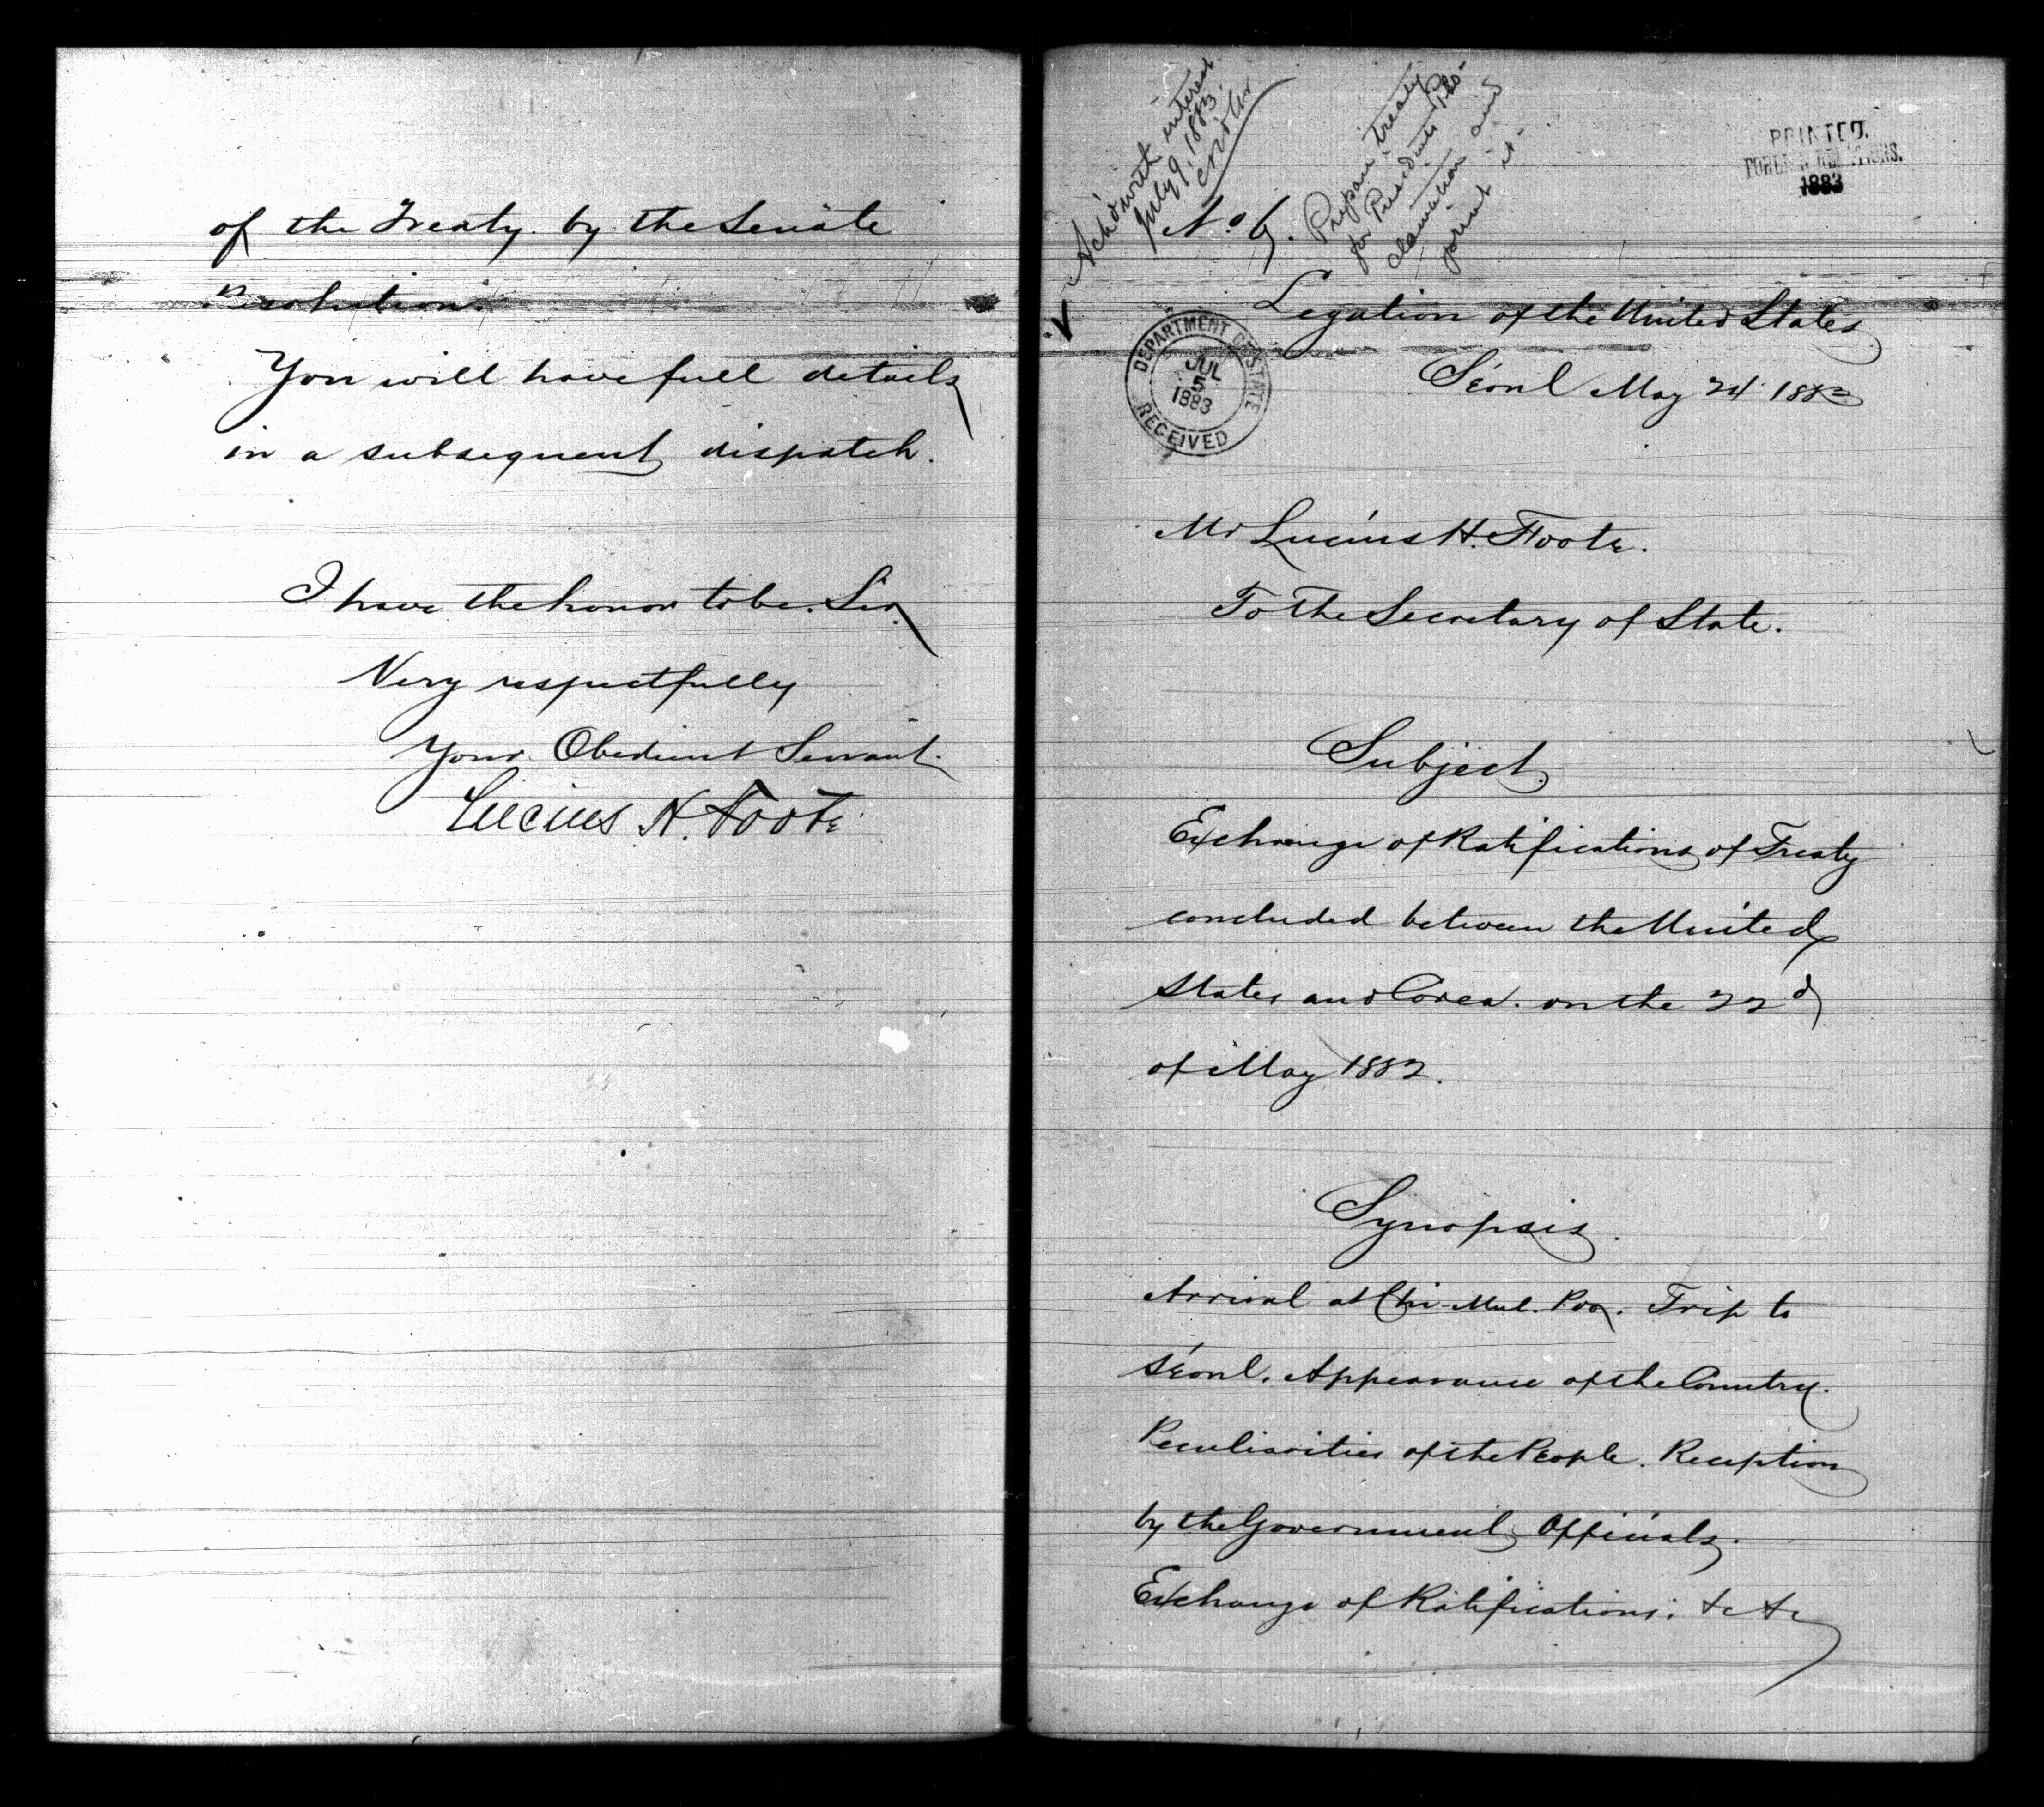 of the Treaty by the Senate
Resolution.
You will have full details
in a subsequent dispatch.
I have the honor to be. Sir,
Very respectfully
Your Obedient Servant.
Lucius H. Foote
Ack'd with interest
July 9, 1883.
Prepare treaty
for President's Pro-
clamation and
print it-
PRINTED.
FOREIGN RELATIONS.
1883
No 6.
Legation of the United States
Séoul May 24 1883
DEPARTMENT OF STATE
JUL
5
1883
RECEIVED
Mr Lucius H. Foote.
To the Secretary of State.
Subject.
Exchange of Ratifications of Treaty
concluded between the United
States and Corea. on the 22d
of May 1882.
Synopsis.
Arrival at Chi-Mul-Poo. Trip to
Séoul. Appearance of the Country.
Peculiarities of the People. Reception
by the Government Officials.
Exchange of Ratifications; &c &c